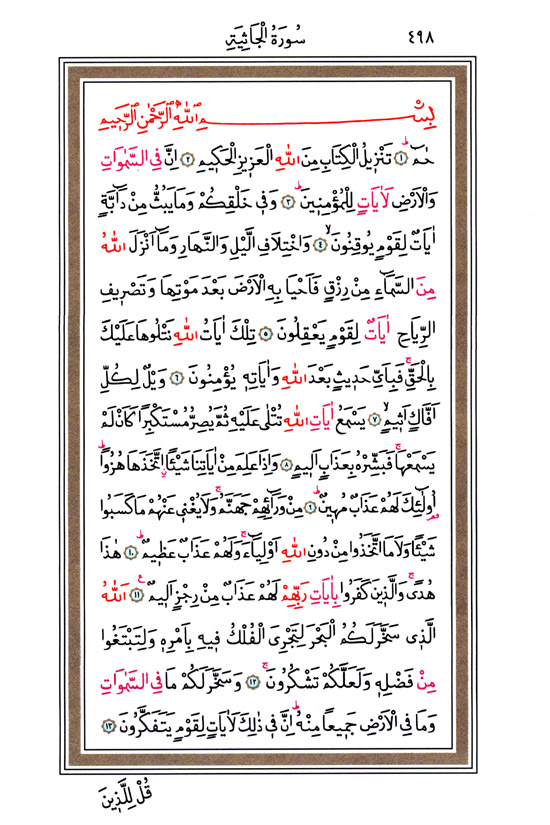 ٤٩٨ سُورَةُ الْجَاثِيَةِ
بِسْمِ اللّٰهِ الرَّحْمٰنِ الرَّحِيمِ
حٰمٓ ۚ ﴿١﴾ تَنْزِيلُ الْكِتَابِ مِنَ اللّٰهِ الْعَزِيزِ الْحَكِيمِ ﴿٢﴾ اِنَّ فِي السَّمٰوَاتِ
وَالْاَرْضِ لَاٰيَاتٍ لِلْمُؤْمِنِينَ ۜ ﴿٣﴾ وَفِي خَلْقِكُمْ وَمَا يَبُثُّ مِنْ دَٓابَّةٍ
اٰيَاتٌ لِقَوْمٍ يُوقِنُونَ ۙ ﴿٤﴾ وَاخْتِلَافِ الَّيْلِ وَالنَّهَارِ وَمَٓا اَنْزَلَ اللّٰهُ
مِنَ السَّمَٓاءِ مِنْ رِزْقٍ فَاَحْيَا بِهِ الْاَرْضَ بَعْدَ مَوْتِهَا وَتَصْرِيفِ
الرِّيَاحِ اٰيَاتٌ لِقَوْمٍ يَعْقِلُونَ ﴿٥﴾ تِلْكَ اٰيَاتُ اللّٰهِ نَتْلُوهَا عَلَيْكَ
بِالْحَقِّ ۚ فَبِاَيِّ حَدِيثٍ بَعْدَ اللّٰهِ وَاٰيَاتِهِ يُؤْمِنُونَ ﴿٦﴾ وَيْلٌ لِكُلِّ
اَفَّاكٍ اَثِيمٍ ۙ ﴿٧﴾ يَسْمَعُ اٰيَاتِ اللّٰهِ تُتْلٰى عَلَيْهِ ثُمَّ يُصِرُّ مُسْتَكْبِرًا كَاَنْ لَمْ
يَسْمَعْهَا ۚ فَبَشِّرْهُ بِعَذَابٍ اَلِيمٍ ﴿٨﴾ وَاِذَا عَلِمَ مِنْ اٰيَاتِنَا شَيْـًٔا ۨاتَّخَذَهَا هُزُوًا ۜ
اُو۬لٰٓئِكَ لَهُمْ عَذَابٌ مُهِينٌ ۜ ﴿٩﴾ مِنْ وَرَٓائِهِمْ جَهَنَّمُ ۚ وَلَا يُغْنِي عَنْهُمْ مَا كَسَبُوا
شَيْـًٔا وَلَا مَا اتَّخَذُوا مِنْ دُونِ اللّٰهِ اَوْلِيَٓاءَ ۚ وَلَهُمْ عَذَابٌ عَظِيمٌ ۜ ﴿١٠﴾ هٰذَا
هُدًى ۚ وَالَّذِينَ كَفَرُوا بِاٰيَاتِ رَبِّهِمْ لَهُمْ عَذَابٌ مِنْ رِجْزٍ اَلِيمٌ ۟ ﴿١١﴾ اَللّٰهُ
الَّذِي سَخَّرَ لَكُمُ الْبَحْرَ لِتَجْرِيَ الْفُلْكُ فِيهِ بِاَمْرِهِ وَلِتَبْتَغُوا
مِنْ فَضْلِهِ وَلَعَلَّكُمْ تَشْكُرُونَ ۚ ﴿١٢﴾ وَسَخَّرَ لَكُمْ مَا فِي السَّمٰوَاتِ
وَمَا فِي الْاَرْضِ جَمِيعًا مِنْهُ ۜ اِنَّ فِي ذٰلِكَ لَاٰيَاتٍ لِقَوْمٍ يَتَفَكَّرُونَ ﴿١٣﴾
قُلْ لِلَّذِينَ